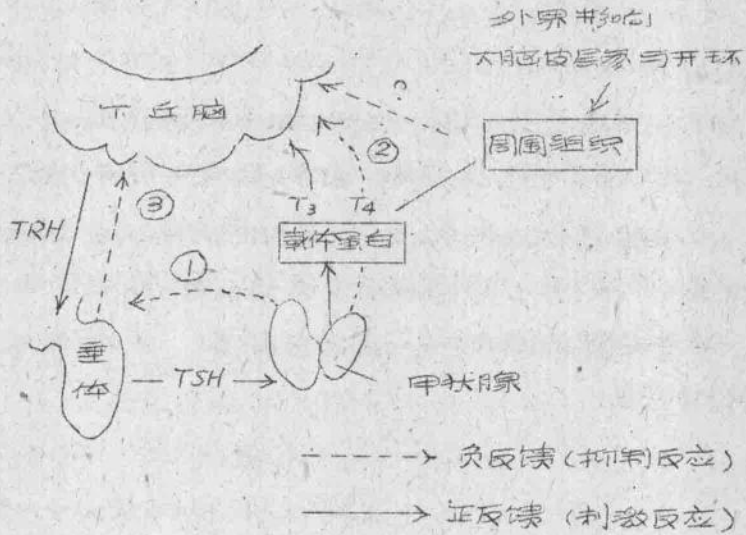 外界影响
大脑皮层参与开环
下丘脑
?
②
周围组织
③
T3 T4
TRH
载体蛋白
①
垂体
TSH
甲状腺
负反馈(抑制反应)
正反馈(刺激反应)